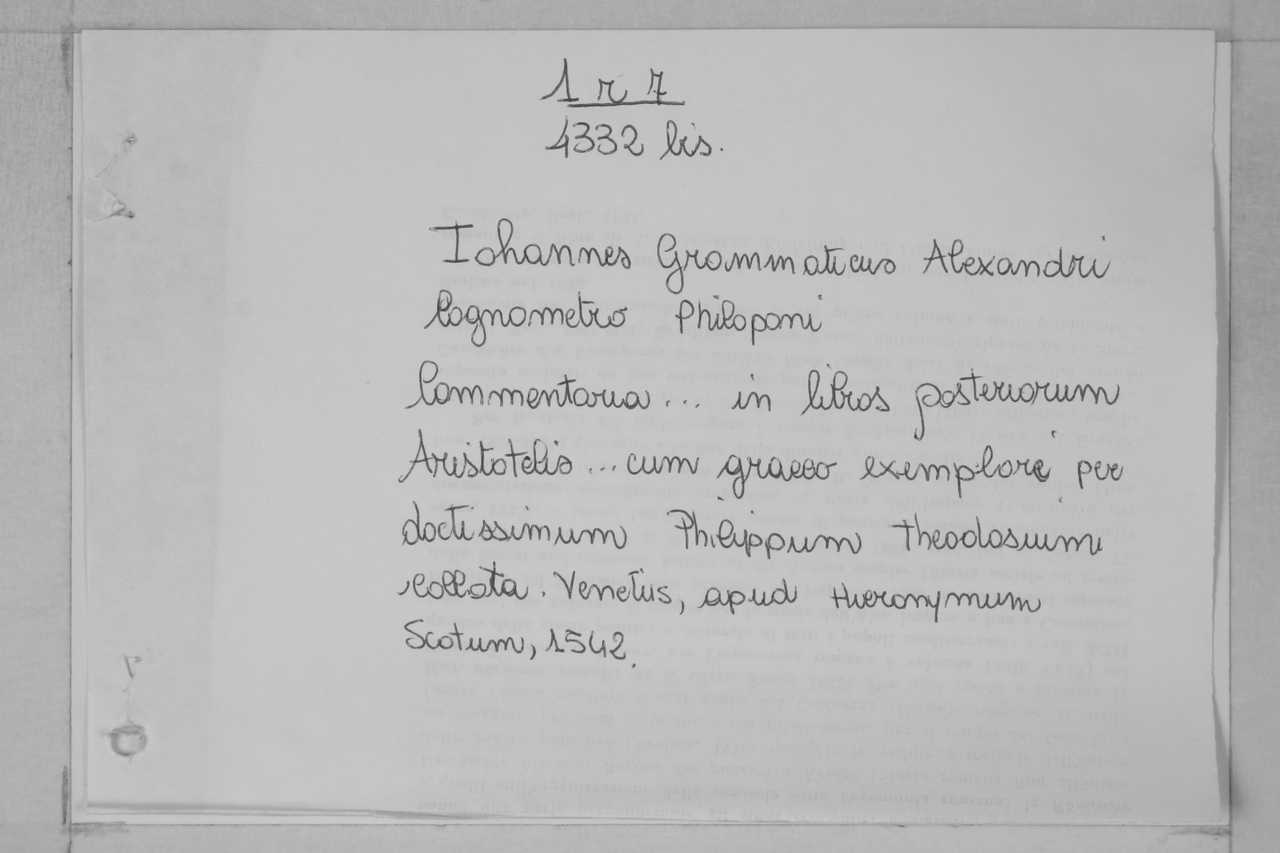 1 r 7
4332 bis.
Iohannes Grammaticus Alexandri
Cognometro Philoponi
Commentaria ... in libros posteriorum
Aristotelis ... cum graeco exemplare per
doctissimum Philippum Theodosium
collata. Venetiis, apud Hieronymum
Scotum, 1542.